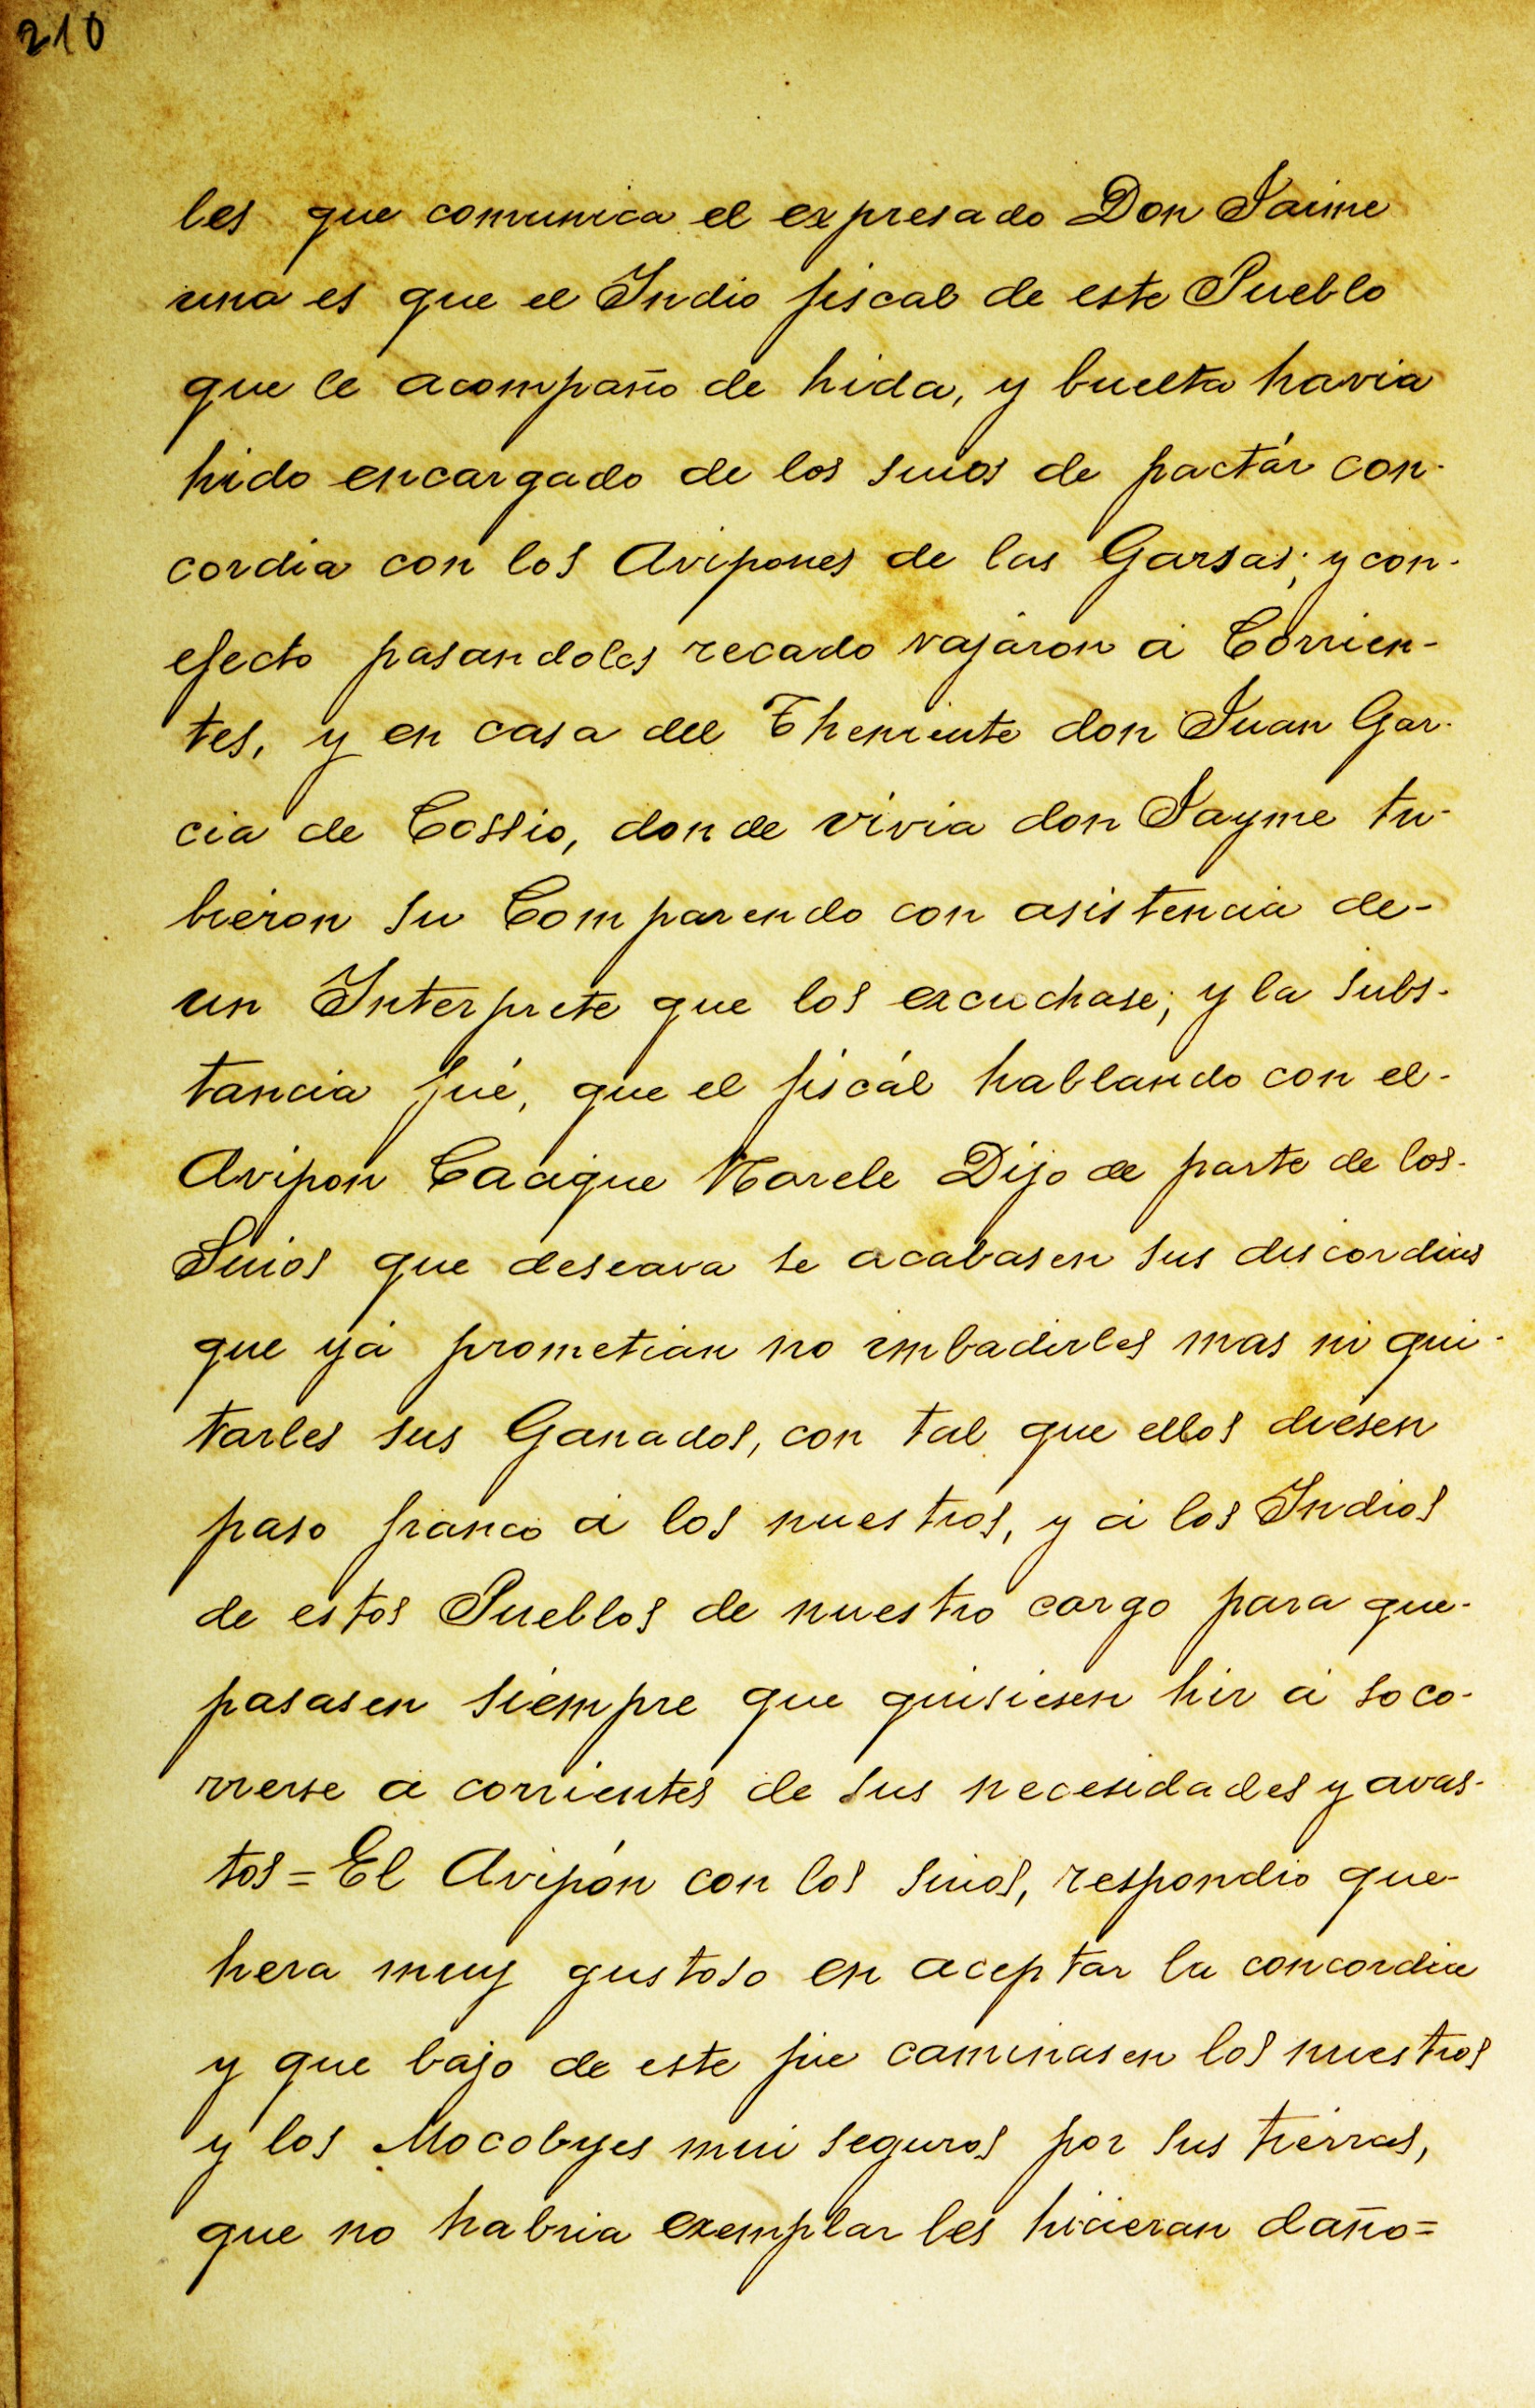 210
les que comunica el expresado Don Jaime
una es que el Indio fiscal de este Pueblo
que le acompaño de hida, y buelta havia
hido encargado de los suios de pactár con-
cordia con los Avipones de las Garsas; y con-
efecto pasandoles recado vajaron á Corrien-
tes, y en casa del Theniente don Juan Gar-
cia de Cossio, donde vivia don Jayme tu-
bieron su Comparendo con asistencia de-
un Interprete que los escuchase; y la subs-
tancia fué, que el fiscál hablando con el-
Avipon Cacique Dijo de parte de los-
Suios que deseava se acabasen sus discordias
que yá prometian no imbadirles mas ni qui-
tarles sus Ganados, con tal que ellos diesen
paso franco á los nuestros, y á los Indios
de estos Pueblos de nuestro cargo para que-
pasasen siempre que quisiesen hir á soco-
rrerse á corrientes de sus necesidades y avas-
tos = El Avipón con los suios, respondio que-
hera muy gustoso en aceptar la concordia
y que bajo de este pie caminasen los nuestros
y los Mocobyes mui seguros por sus tierras,
que no habria exemplar les hicieran daño =